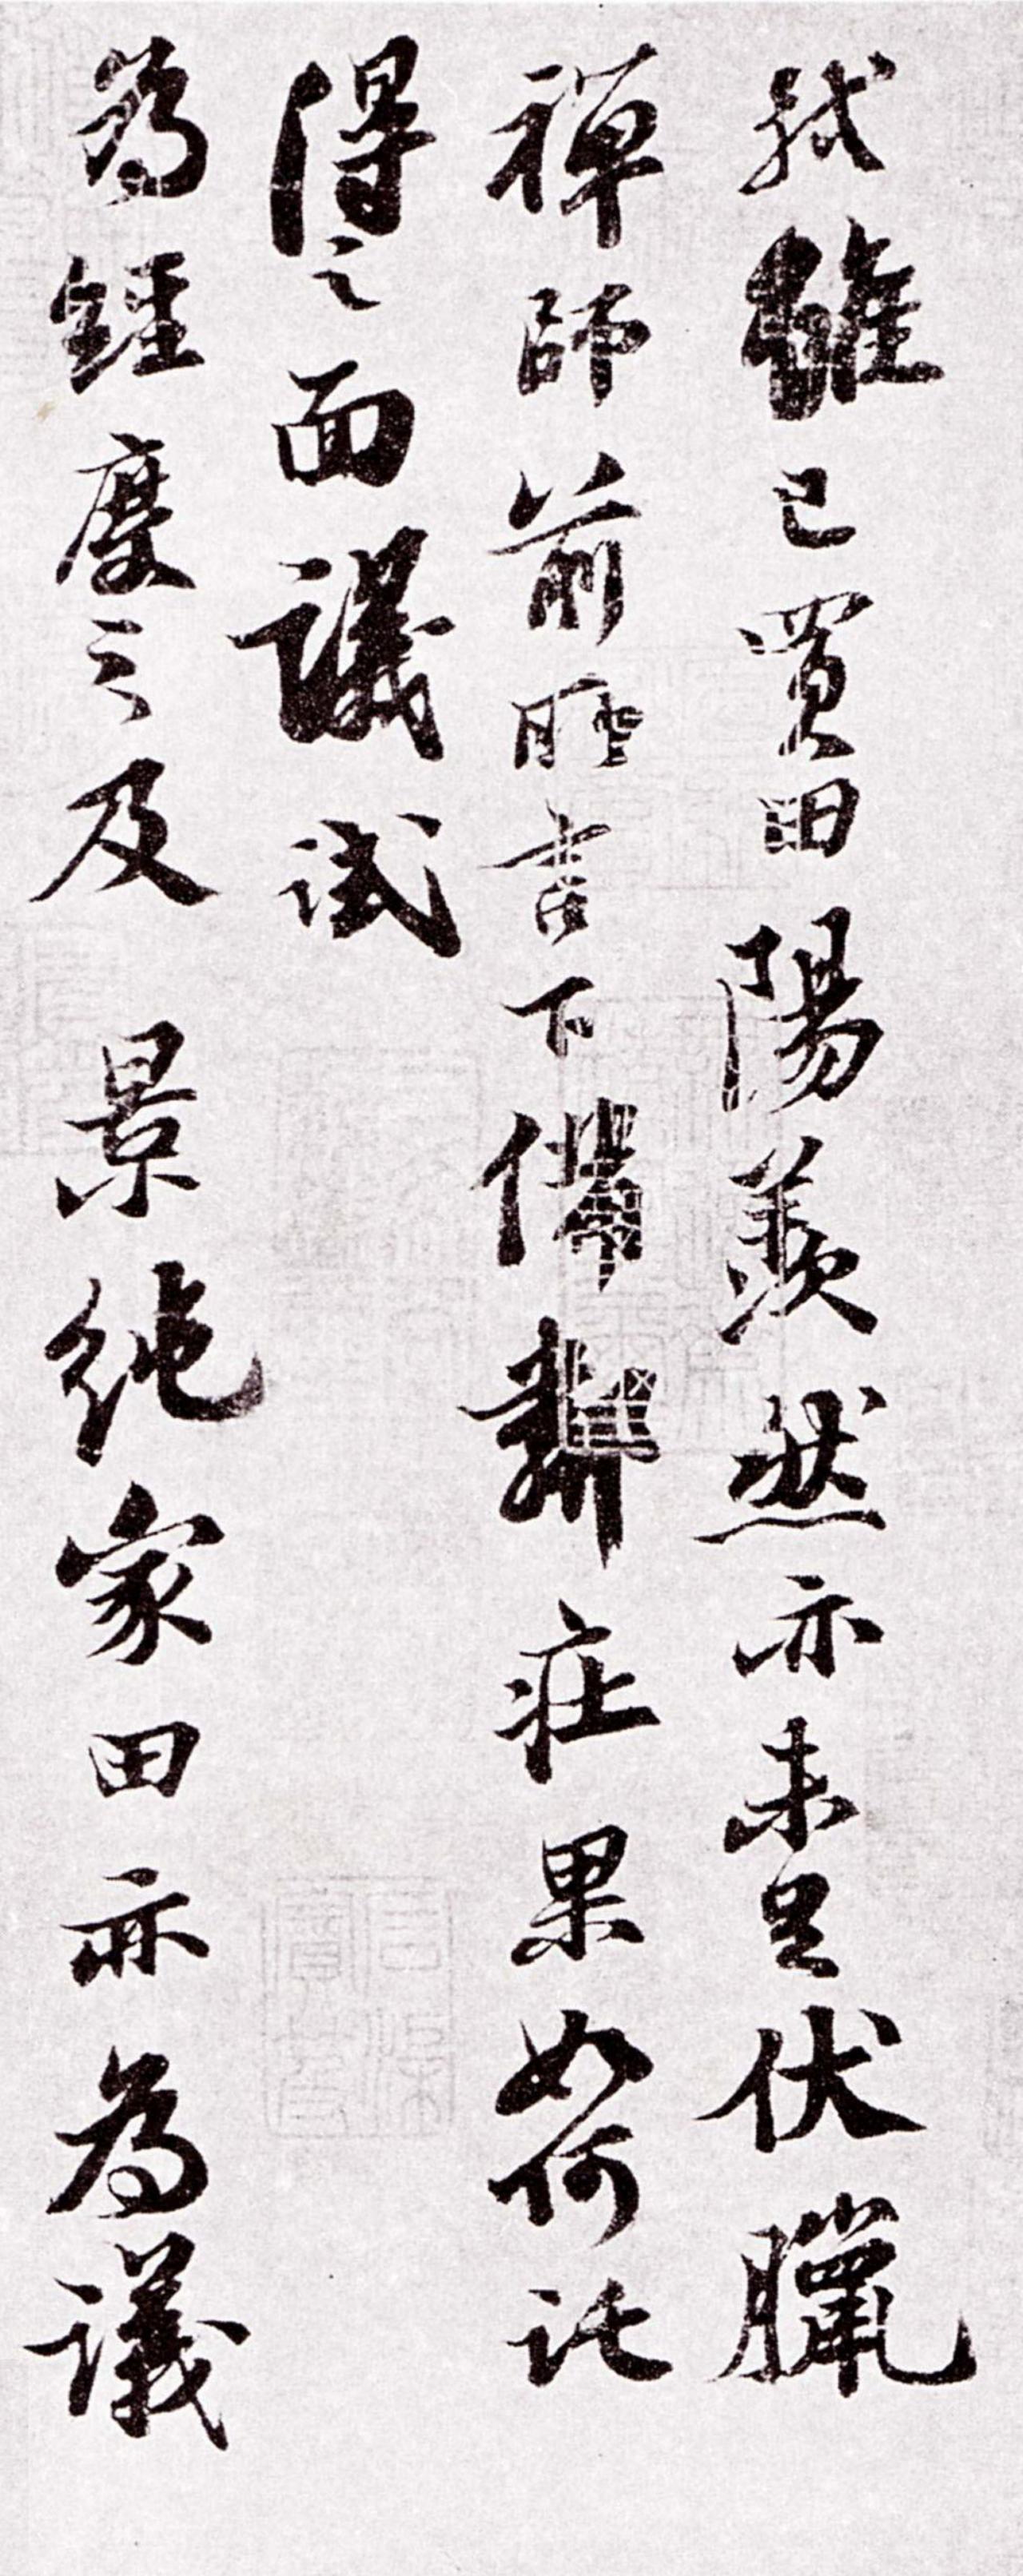 軾雖已買田陽羨然亦未足伏臘
禪師前所言下備鄰莊果如何託
得之面議試
為經度之及景純家田亦為議